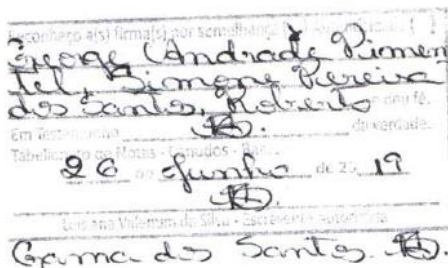 Reconheço a(s) firma(s) por semelhança
George Andrade Pimen
tel, Simone Pereira
dos Santos, Roberto
dou fé.
Em Testemunho da verdade.
Tabelionato de Notas - Canudos - Ba
26 de Junho de 20 19
Silva - Escrevente autorizada
Gama dos Santos.